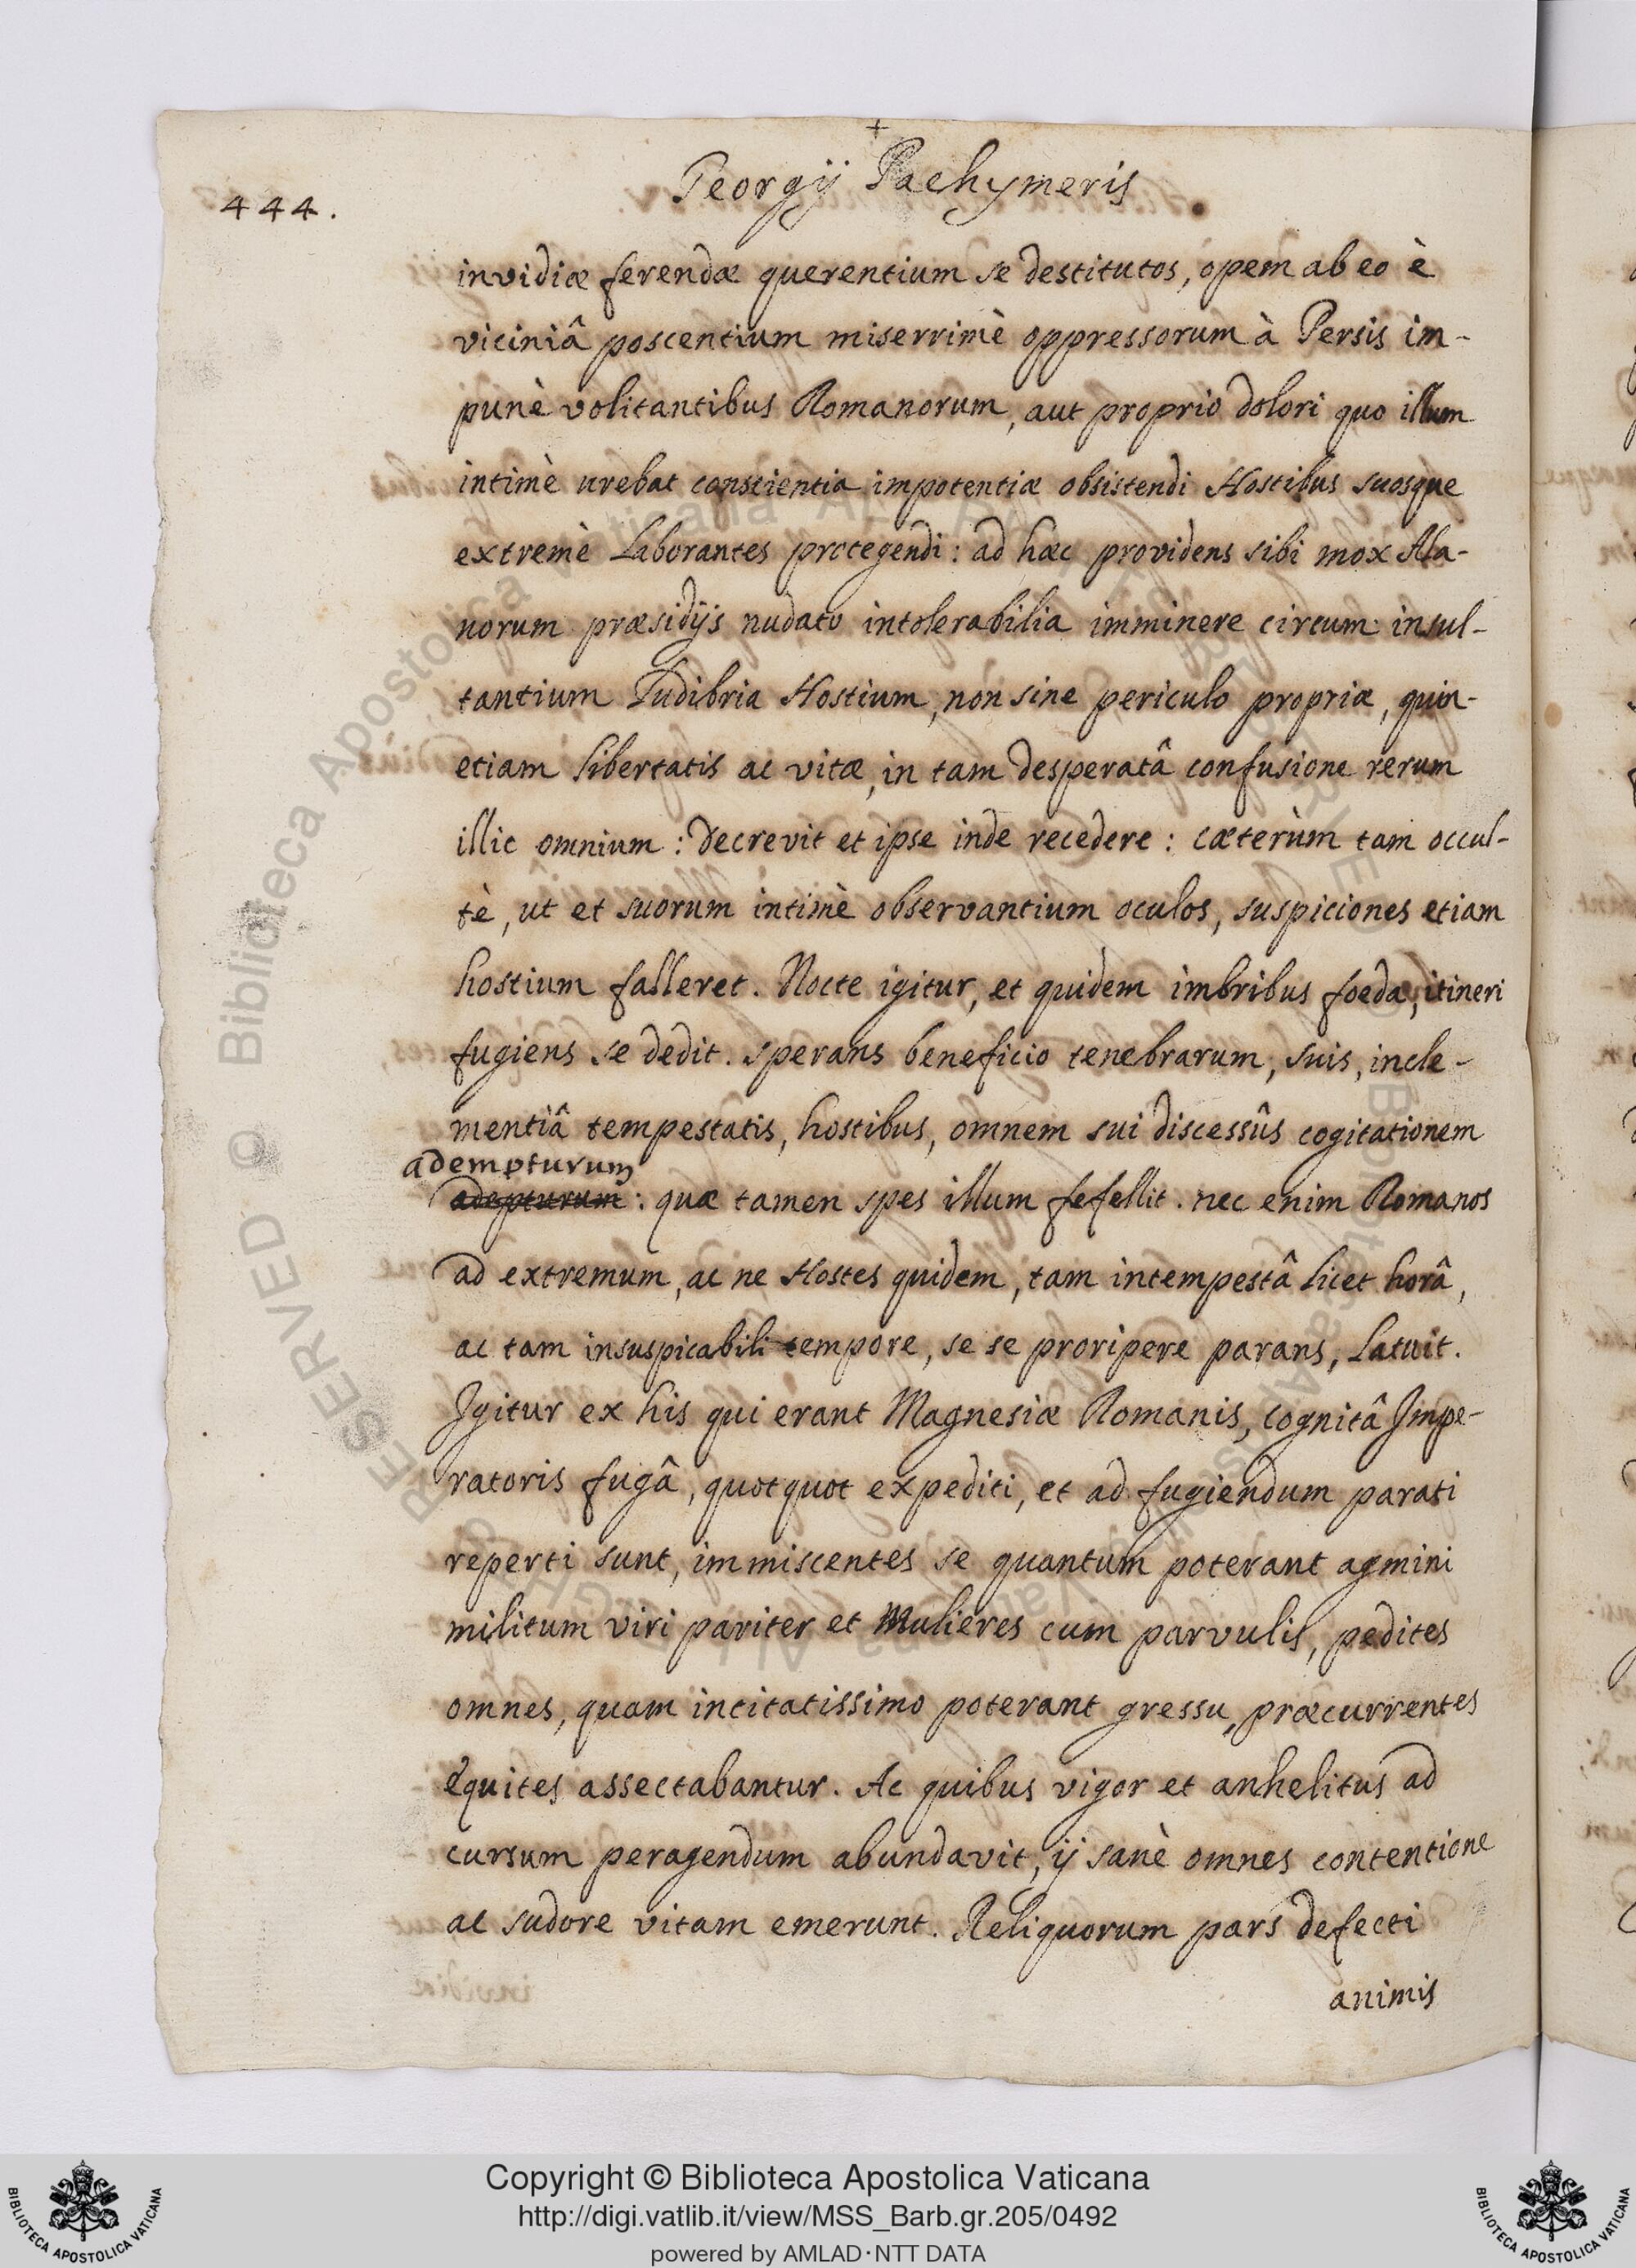 444.
Georgij Pachymeris
invidiæ ferendæ querentium se destitutos, opem ab eo è
viciniâ poscentium miserrimè oppressorum à Persis im-
punè volitantibus Romanorum, aut proprio dolori quo illum
intimè urebat conscientia impotentiæ obsistendi Hostibus suosque
extremè Laborantes protegendi: ad hæc providens sibi mox Ala-
norum præsidijs nudato intolerabilia imminere circum insul-
tantium Ludibria Hostium, non sine periculo propriæ, quin-
etiam Libertatis ac vitæ, in tam desperatâ confusione rerum
illic omnium: decrevit et ipse inde recedere: cæterùm tam occul-
tè, ut et suorum intimè observantium oculos, suspiciones etiam
hostium falleret. Nocte igitur, et quidem imbribus foeda, itineri
fugiens se dedit. sperans beneficio tenebrarum, suis, incle-
mentiâ tempestatis, hostibus, omnem sui discessûs cogitationem
adempturum
adepturum: quæ tamen spes illum fefellit. nec enim Romanos
ad extremum, ac ne Hostes quidem, tam intempestâ Licet horâ,
ac tam insuspicabili tempore, se se proripere parans, Latuit.
Igitur ex his qui erant Magnesiæ Romanis, cognitâ Impe-
ratoris fugâ, quotquot expediti, et ad fugiendum parati
reperti sunt, immiscentes se quantum poterant agmini
militum viri pariter et Mulieres cum parvulis, pedites
omnes, quam incitatissimo poterant gressu, præcurrentes
equites assectabantur. Ac quibus vigor et anhelitus ad
cursum peragendum abundavit, ij sanè omnes contentione
ac sudore vitam emerunt. Reliquorum pars defecti
animis
Copyright © Biblioteca Apostolica Vaticana
http://digi.vatlib.it/view/MSS_Barb.gr.205/0492
powered by AMLAD·NTT DATA
BIBLIOTECA APOSTOLICA VATICANA
BIBLIOTECA APOSTOLICA VATICANA